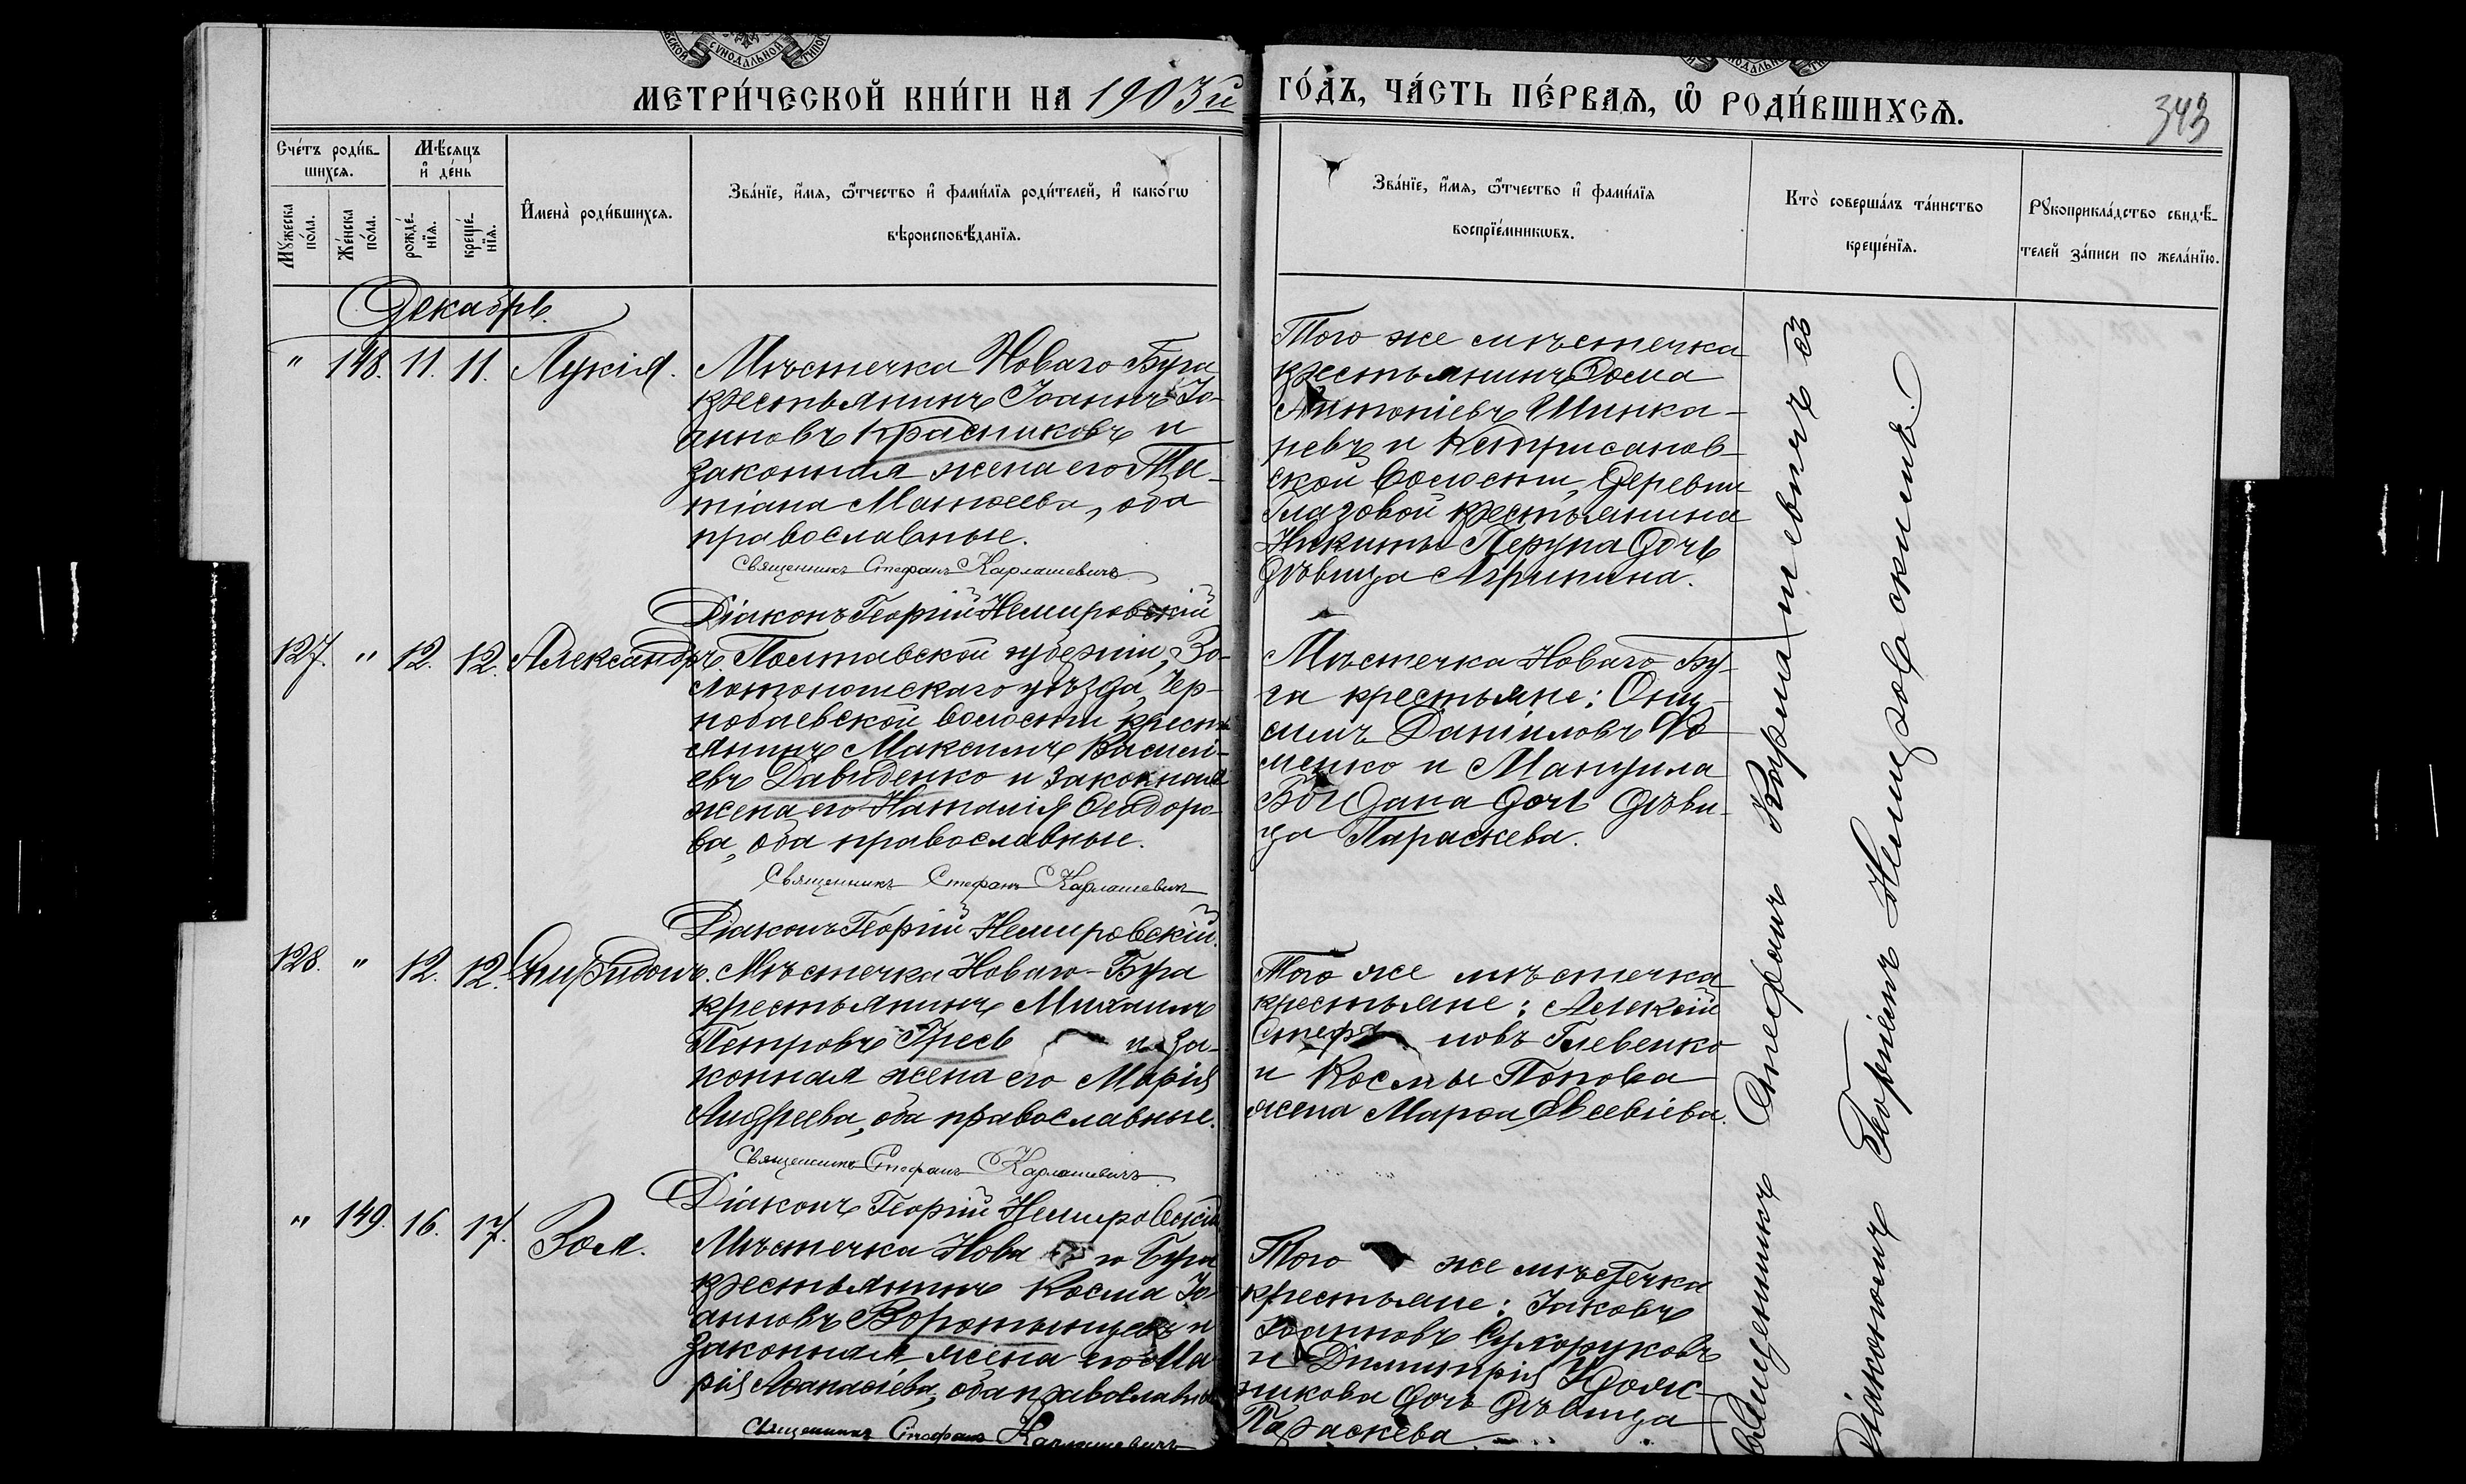 МЕТРИ́ЧЕСКОЙ КНИ́ГИ НА 1903й ГО́ДЪ, ЧА́СТЬ ПЕ́РВАѦ, Ѡ҆ РОДИ́ВШИХСѦ.
343
Сче́тъ роди́в-
шихсѧ.
Мѣ́сѧцъ
и҆ де́нь
Мꙋ́жеска
по́ла.
Же́нска
по́ла.
рожде́-
нїѧ.
креще́-
нїѧ.
И҆мена̀ роди́вшихсѧ.
Зва́нїе, и҆́мѧ, ѻ҆́тчество и҆ фами́лїѧ роди́телей, и҆ како́гѡ
вѣроисповѣ́данїѧ.
Зва́нїе, и҆́мѧ, ѻ҆́тчество и҆ фами́лїѧ
воспрїе́мникѡвъ.
Кто̀ соверша́лъ та́инство
креще́нїѧ.
Рꙋкоприкла́дство свидѣ́-
телей за́писи по жела́нїю.
Декабрь.
" 148. 11. 11. Лукія.
Мѣстечка Новаго Буга
крестьянинъ Іоаннъ Іо-
анновъ Красниковъ и
законная жена его Та-
тіана Матѳеева, оба
православные.
Священникъ Стефанъ Кармашевичъ
Діаконъ Георгій Немировскій
Того же мѣстечка
крестьянинъ Ѳома
Антоніевъ Шинка-
ревъ и
ской волости, деревни
Глазовой крестьянина
Никиты Перуна дочь
дѣвица Агрипина.
127. " 12. 12. Александръ.
Полтавской губерніи, Зо-
лотоношскаго уѣзда, Чер-
нобаевской волости крестья-
янинъ Максимъ Василі-
евъ Давиденко и законная
жена его Наталія Ѳеодоро-
ва, оба православные.
Священникъ Стефанъ Кармашевичъ
Діаконъ Георгій Немировскій.
Мѣстечка Новаго Бу-
га крестьяне: Они-
симъ Даніиловъ Ѳо-
менко и Мануила
Богдана дочь дѣви-
ца Параскева.
128. " 12. 12. Спиридонъ.
Мѣстечка Новаго-Буга
крестьянинъ Михаилъ
Петровъ Гресь и за-
конная жена его Марія
Андреева, оба православные.
Священникъ Стефанъ Кармашевичъ
Діаконъ Георгій Немировскій
Того же мѣстечка
крестьяне: Алексій
Стефановъ Глевенко
и Космы Попова
жена Марѳа Евсевіева.
" 149. 16. 17. Зоя.
Мѣстечка Новаго Буга
крестьянинъ Косма Іо-
анновъ Воротынцевъ и
законная жена его Ма-
рія Аѳанасіева, оба православные
Священникъ Стефанъ Кармашевичъ
Того же мѣстечка
крестьяне: Іаковъ
Іоанновъ Сухоруковъ
и Димитрія
никова дочь дѣвица
Параскева
Священникъ Стефанъ Кармашевичъ съ
Діакономъ Георгіемъ Немировскимъ.